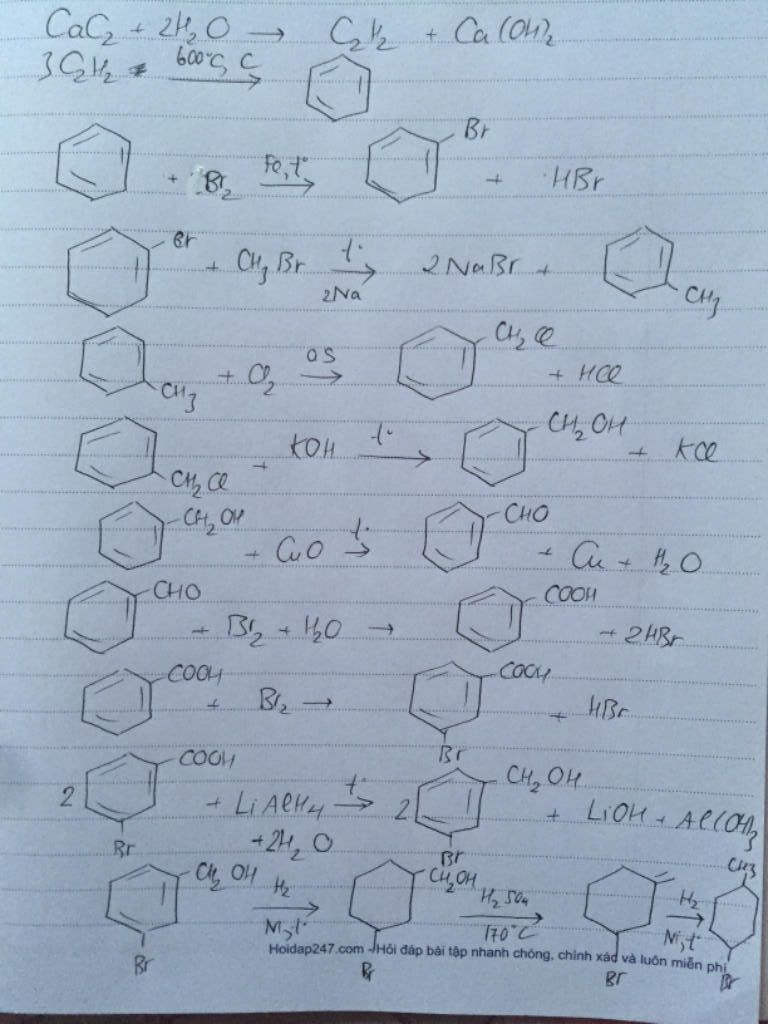 CaC₂ + 2H₂O → C₂H₂ + Ca(OH)₂
3C₂H₂ 600°C, C →
+ Br₂ Fe, t° → Br + HBr
Br + CH₃Br t° 2Na → 2NaBr + CH₃
CH₃ + Cl₂ as → CH₂Cl + HCl
CH₂Cl + KOH t° → CH₂OH + KCl
CH₂OH + CuO t° → CHO + Cu + H₂O
CHO + Br₂ + H₂O → COOH + 2HBr
COOH + Br₂ → COOH Br + HBr
2 COOH Br + LiAlH₄ + 2H₂O t° → 2 CH₂OH Br + LiOH + Al(OH)₃
CH₂OH Br H₂ Ni, t° → CH₂OH Br H₂SO₄ 170°C → Br H₂ Ni, t° → CH₃ Br
Hoidap247.com - Hỏi đáp bài tập nhanh chóng, chính xác và luôn miễn phí